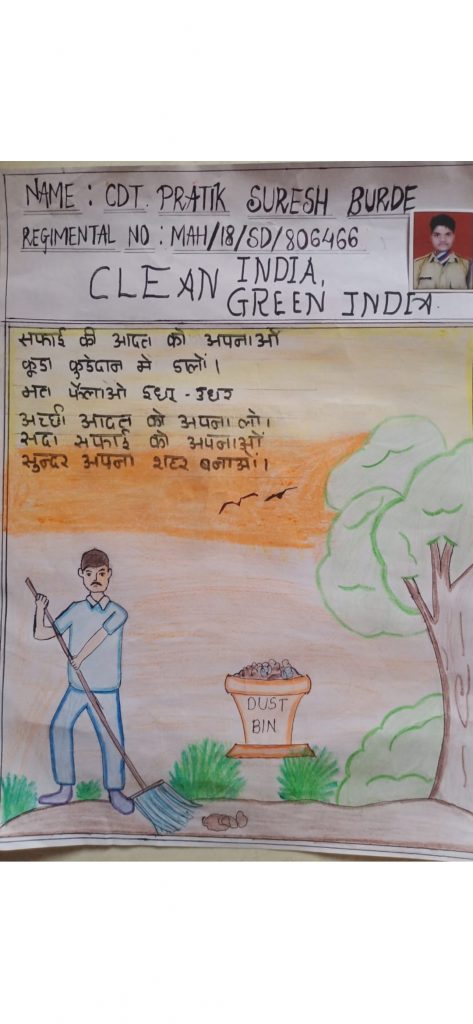 NAME : CDT. PRATIK SURESH BURDE
REGIMENTAL NO : MAH/18/SD/806466
CLEAN INDIA,
GREEN INDIA
सफाई की आदत को अपनाओं
कूडा कुडेदान मे डालों।
मत फैलाओ इधर - उधर
अच्छी आदत को अपना लो।
सदा सफाई को अपनाओं
सुन्दर अपना शहर बनाओं।
DUST
BIN